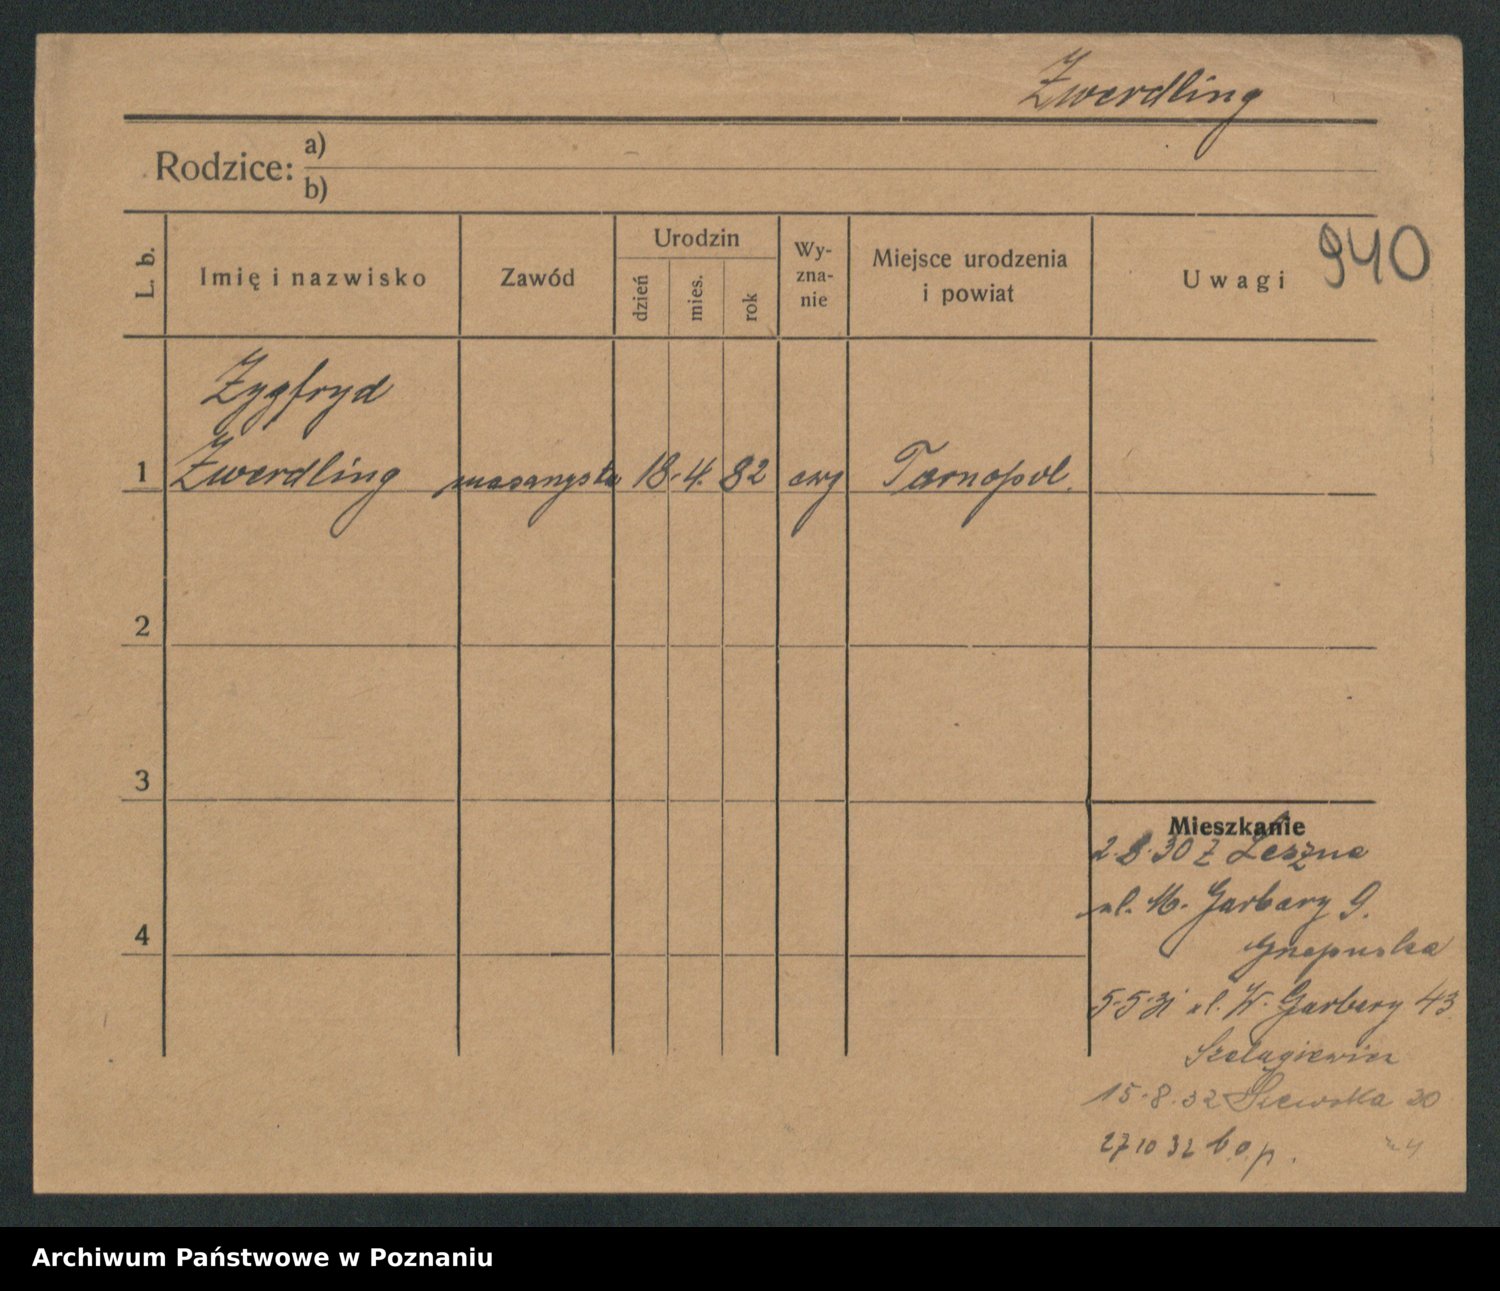 Zwerdling
Rodzice: a)
b)
940
L. b.
Imię i nazwisko
Zawód
Urodzin
dzień
mies.
rok
Wy-
zna-
nie
Miejsce urodzenia
i powiat
Uwagi
Zygfryd
1 Zwerdling masarzysta 18. 4. 82 Tarnopol.
2
3
4
Mieszkanie
2.8.30 z Leszna
ul. M. Garbary 9.
5.5.31 ul. W. Garbary 43
Szelągiewicz
15.8.32 30
27 10 32 b.o.p.
Archiwum Państwowe w Poznaniu